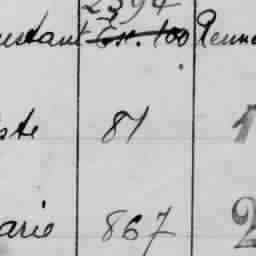 2394
ustant Gr. 100 Renn
ste 81 1
arie 867 2